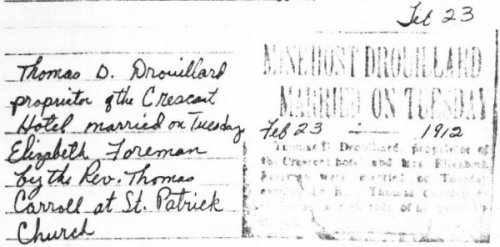 Feb 23
Thomas D. Drouillard
proprietor of the Crescent
Hotel married on Tuesday
Elizabeth Foreman
by the Rev. Thomas
Carroll at St. Patrick
Church
MINEHOST DROUILLARD
MARRIED ON TUESDAY
Feb 23 1912
Thomas D. Drouillard, proprietor of
the Crescent hotel and Miss Elizabeth
Foreman were married on Tuesday
by Rev. Thomas